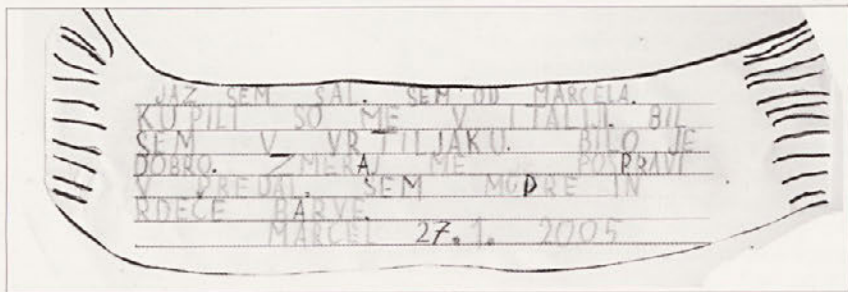 JAZ SEM ŠAL. SEM OD MARCELA.
KUPILI SO ME V ITALIJI. BIL
SEM V VRTILJAKU. BILO JE
DOBRO. ZMERAJ ME POSPRAVI
V PREDAL. SEM MODRE IN
RDEČE BARVE.
MARCEL 27.1. 2005